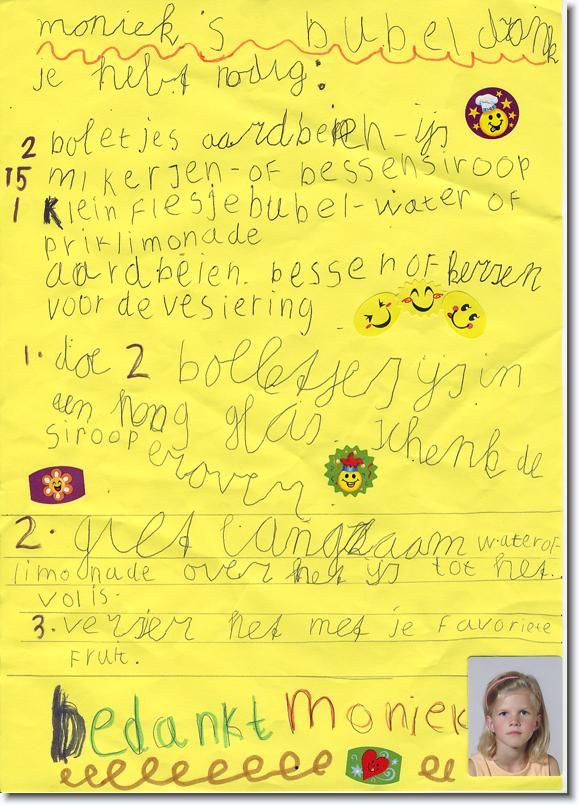 moniek's bubeldrank
je hebt nodig:
2 boletjes aardbeien-ijs
15 ml kersen-of bessensiroop
1 klein flesjebubel-water of
priklimonade
aardbeien. bessen of kersen
voor de vesiering
1. doe 2 bolletjes ijs in
een hoog glas. schenk de
siroop erover.
2. giet langzaam water of
limonade over het ijs tot het
vol is.
3. versier het met je favoriete
fruit.
bedankt moniek